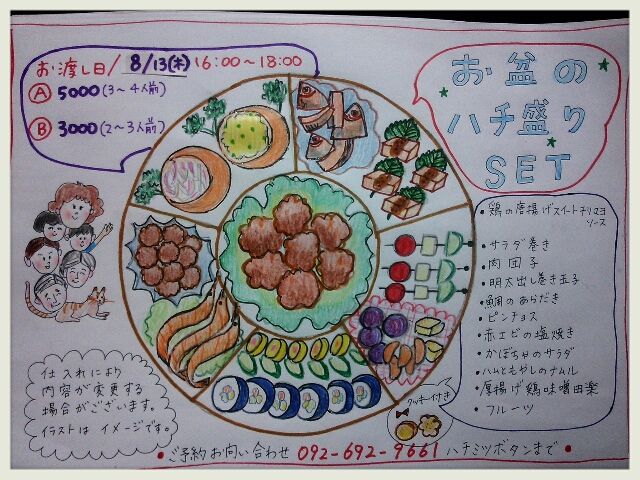 お渡し日/ 8/13(木) 16:00〜18:00
Ⓐ 5000(3〜4人前)
Ⓑ 3000(2〜3人前)
お盆の
ハチ盛り
SET
・鶏の唐揚げスイートチリマヨ
ソース
・サラダ巻き
・肉団子
・明太出し巻き玉子
・鯛のあらだき
・ピンチョス
・赤エビの塩焼き
・かぼちゃのサラダ
・ハムともやしのナムル
・厚揚げ鶏味噌田楽
・フルーツ
クッキー付き
仕入れにより
内容が変更する
場合がございます。
イラストはイメージです。
・ご予約お問い合わせ 092-692-9661 ハチミツボタンまで・